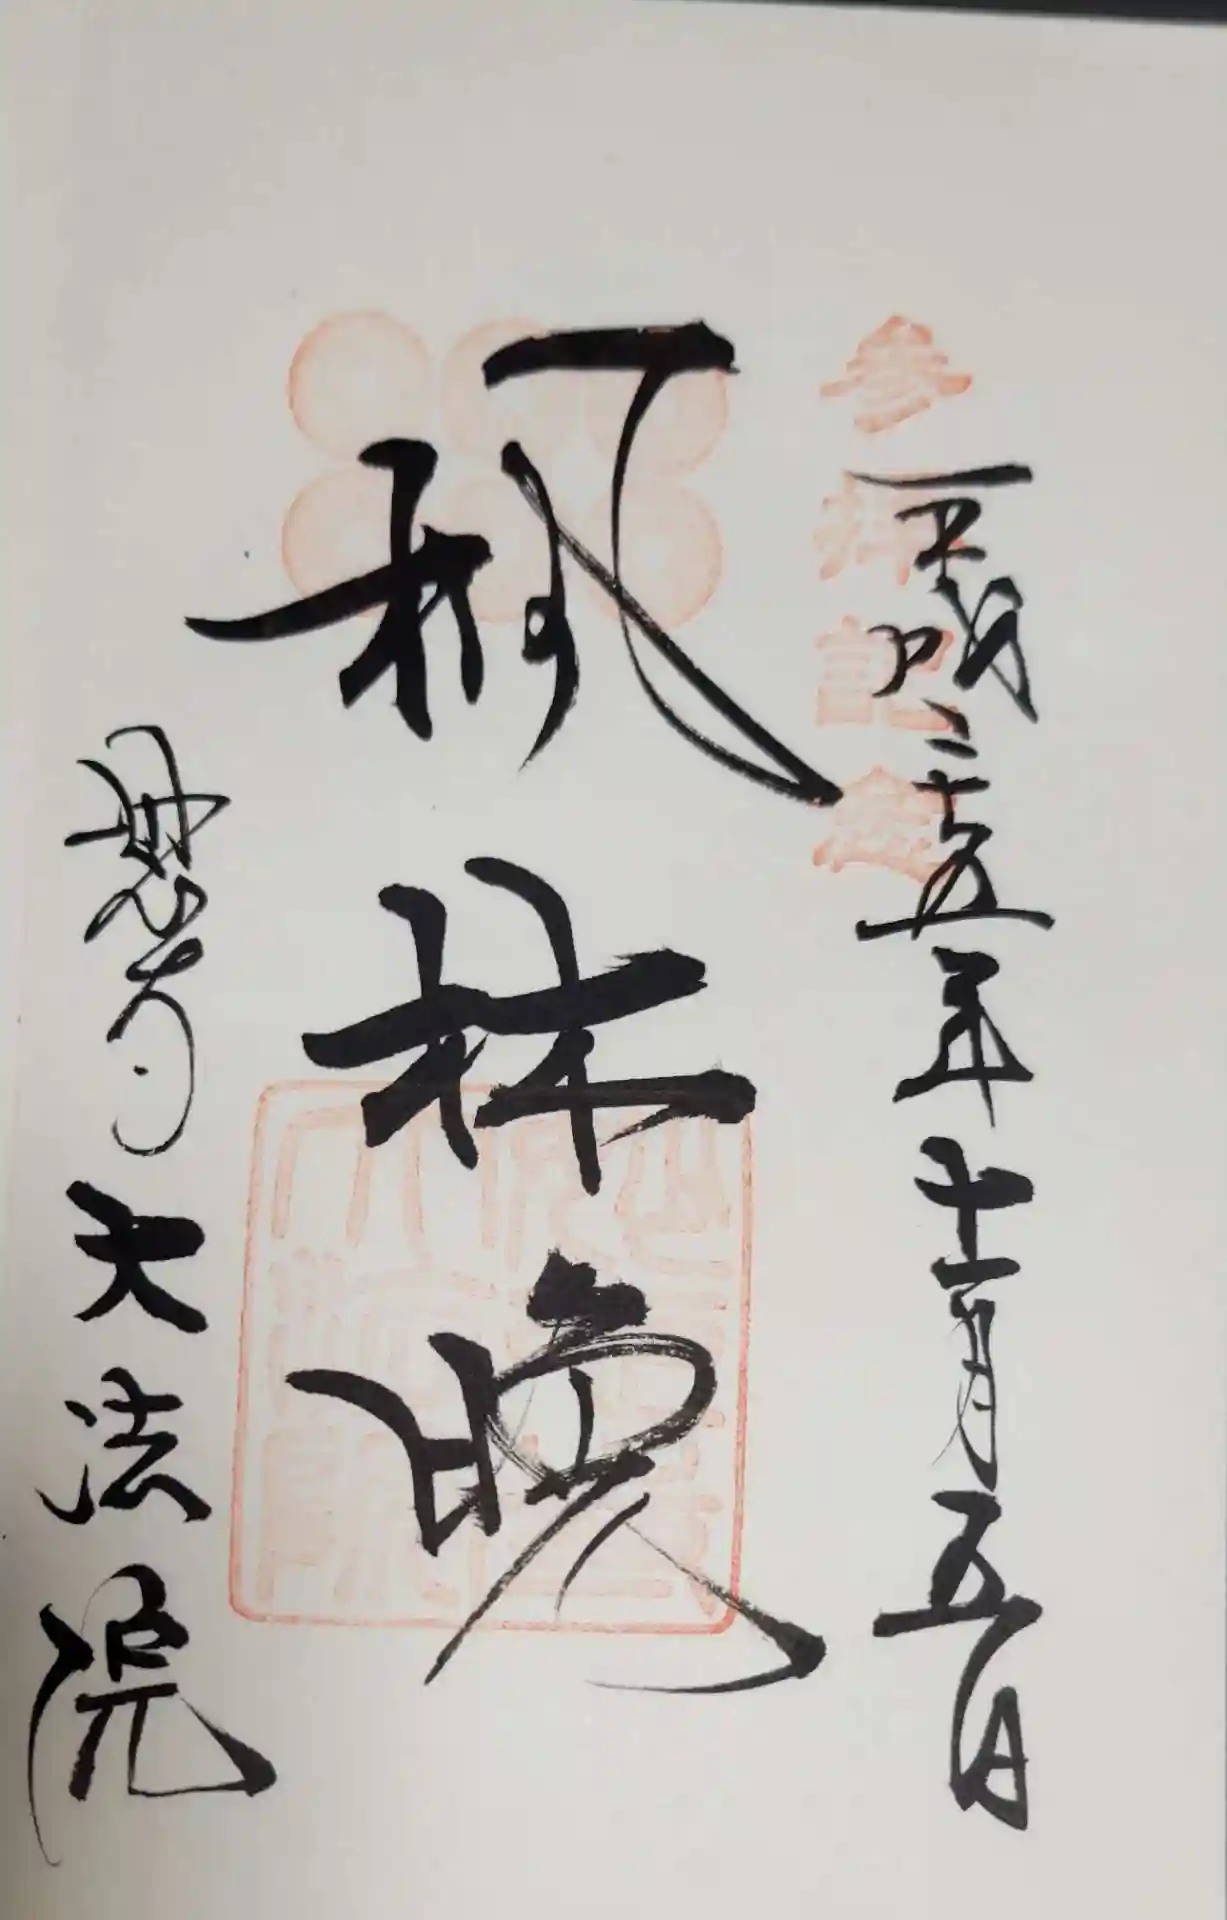 参拝記念
平成二十五年十一月五日
楓林晩
妙心寺大法院